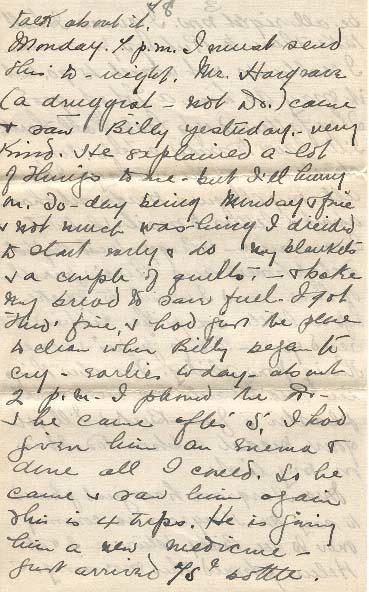 8
talk about it.
Monday. 7 p.m. I must send
this to-night. Mr. Hargrave
(a druggist - not Dr.) came
& saw Billy yesterday. - very
kind. He explained a lot
of things to me - but I'll hurry
on. To-day being Monday & fine
& not much washing I decided
to start early & do - my blankets
& a couple of quilts. - & bake
my bread to save fuel. I got
thro' fine, & had just the
to clean when Billy began to
cry - earlier today - about
2 p.m. - I phoned the Dr -
& he came after 5. I had
given him an enema &
done all I could. So he
came & saw him again
this is 4 trips. He is giving
him a new medicine -
just arrived 75¢ bottle.